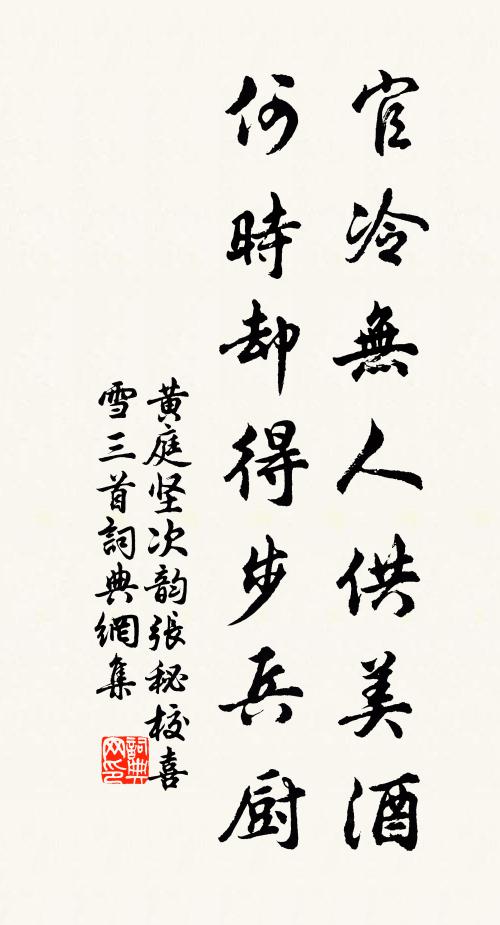 官冷無人供美酒
何時却得步兵厨
黄庭坚次韵張秘校喜
雪三首詞典網集
詞典
网印